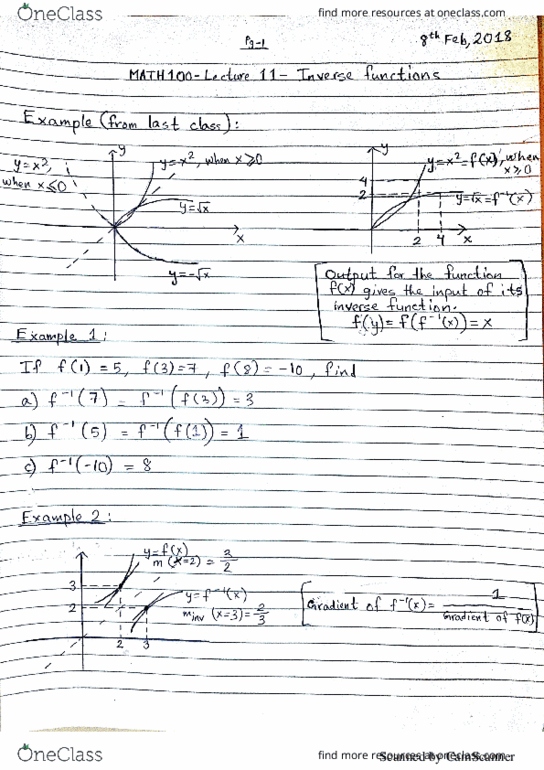 OneClass
find more resources at oneclass.com
Pg-1
8th Feb, 2018
MATH100-Lecture 11- Inverse functions
Example (from last class):
y=x², when x≤0
y
y=x², when x≥0
y=√x
x
y=-√x
y
y=x²=f(x), when x≥0
4
2
y=√x=f⁻¹(x)
2 4 x
Output for the function
f(x) gives the input of its
inverse function.
f(y)= f(f⁻¹(x))=x
Example 1:
If f(1)=5, f(3)=7, f(8)=-10, find
a) f⁻¹(7) = f⁻¹(f(3)) = 3
b) f⁻¹(5) = f⁻¹(f(1)) = 1
c) f⁻¹(-10) = 8
Example 2:
y=f(x)
m (x=2) = 3/2
3
2
y=f⁻¹(x)
m inv (x=3)=2/3
2 3
Gradient of f⁻¹(x)= 1/Gradient of f(x)
OneClass
find more resources at oneclass.com
Scanned by CamScanner